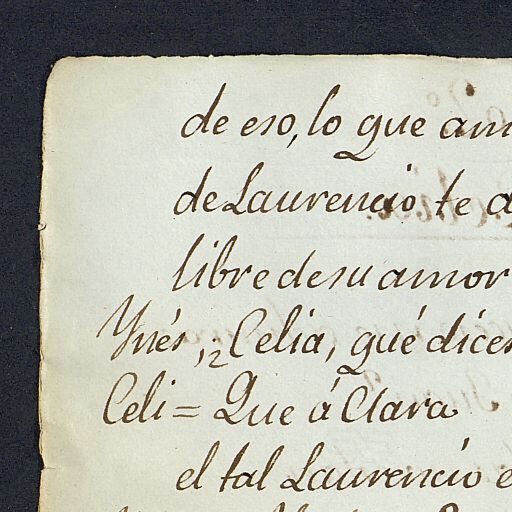 de eso, lo que am
de Laurencio te a
libre de su amor
Ynés,, Celia, qué dices
Celi= Que á Clara
el tal Laurencio e